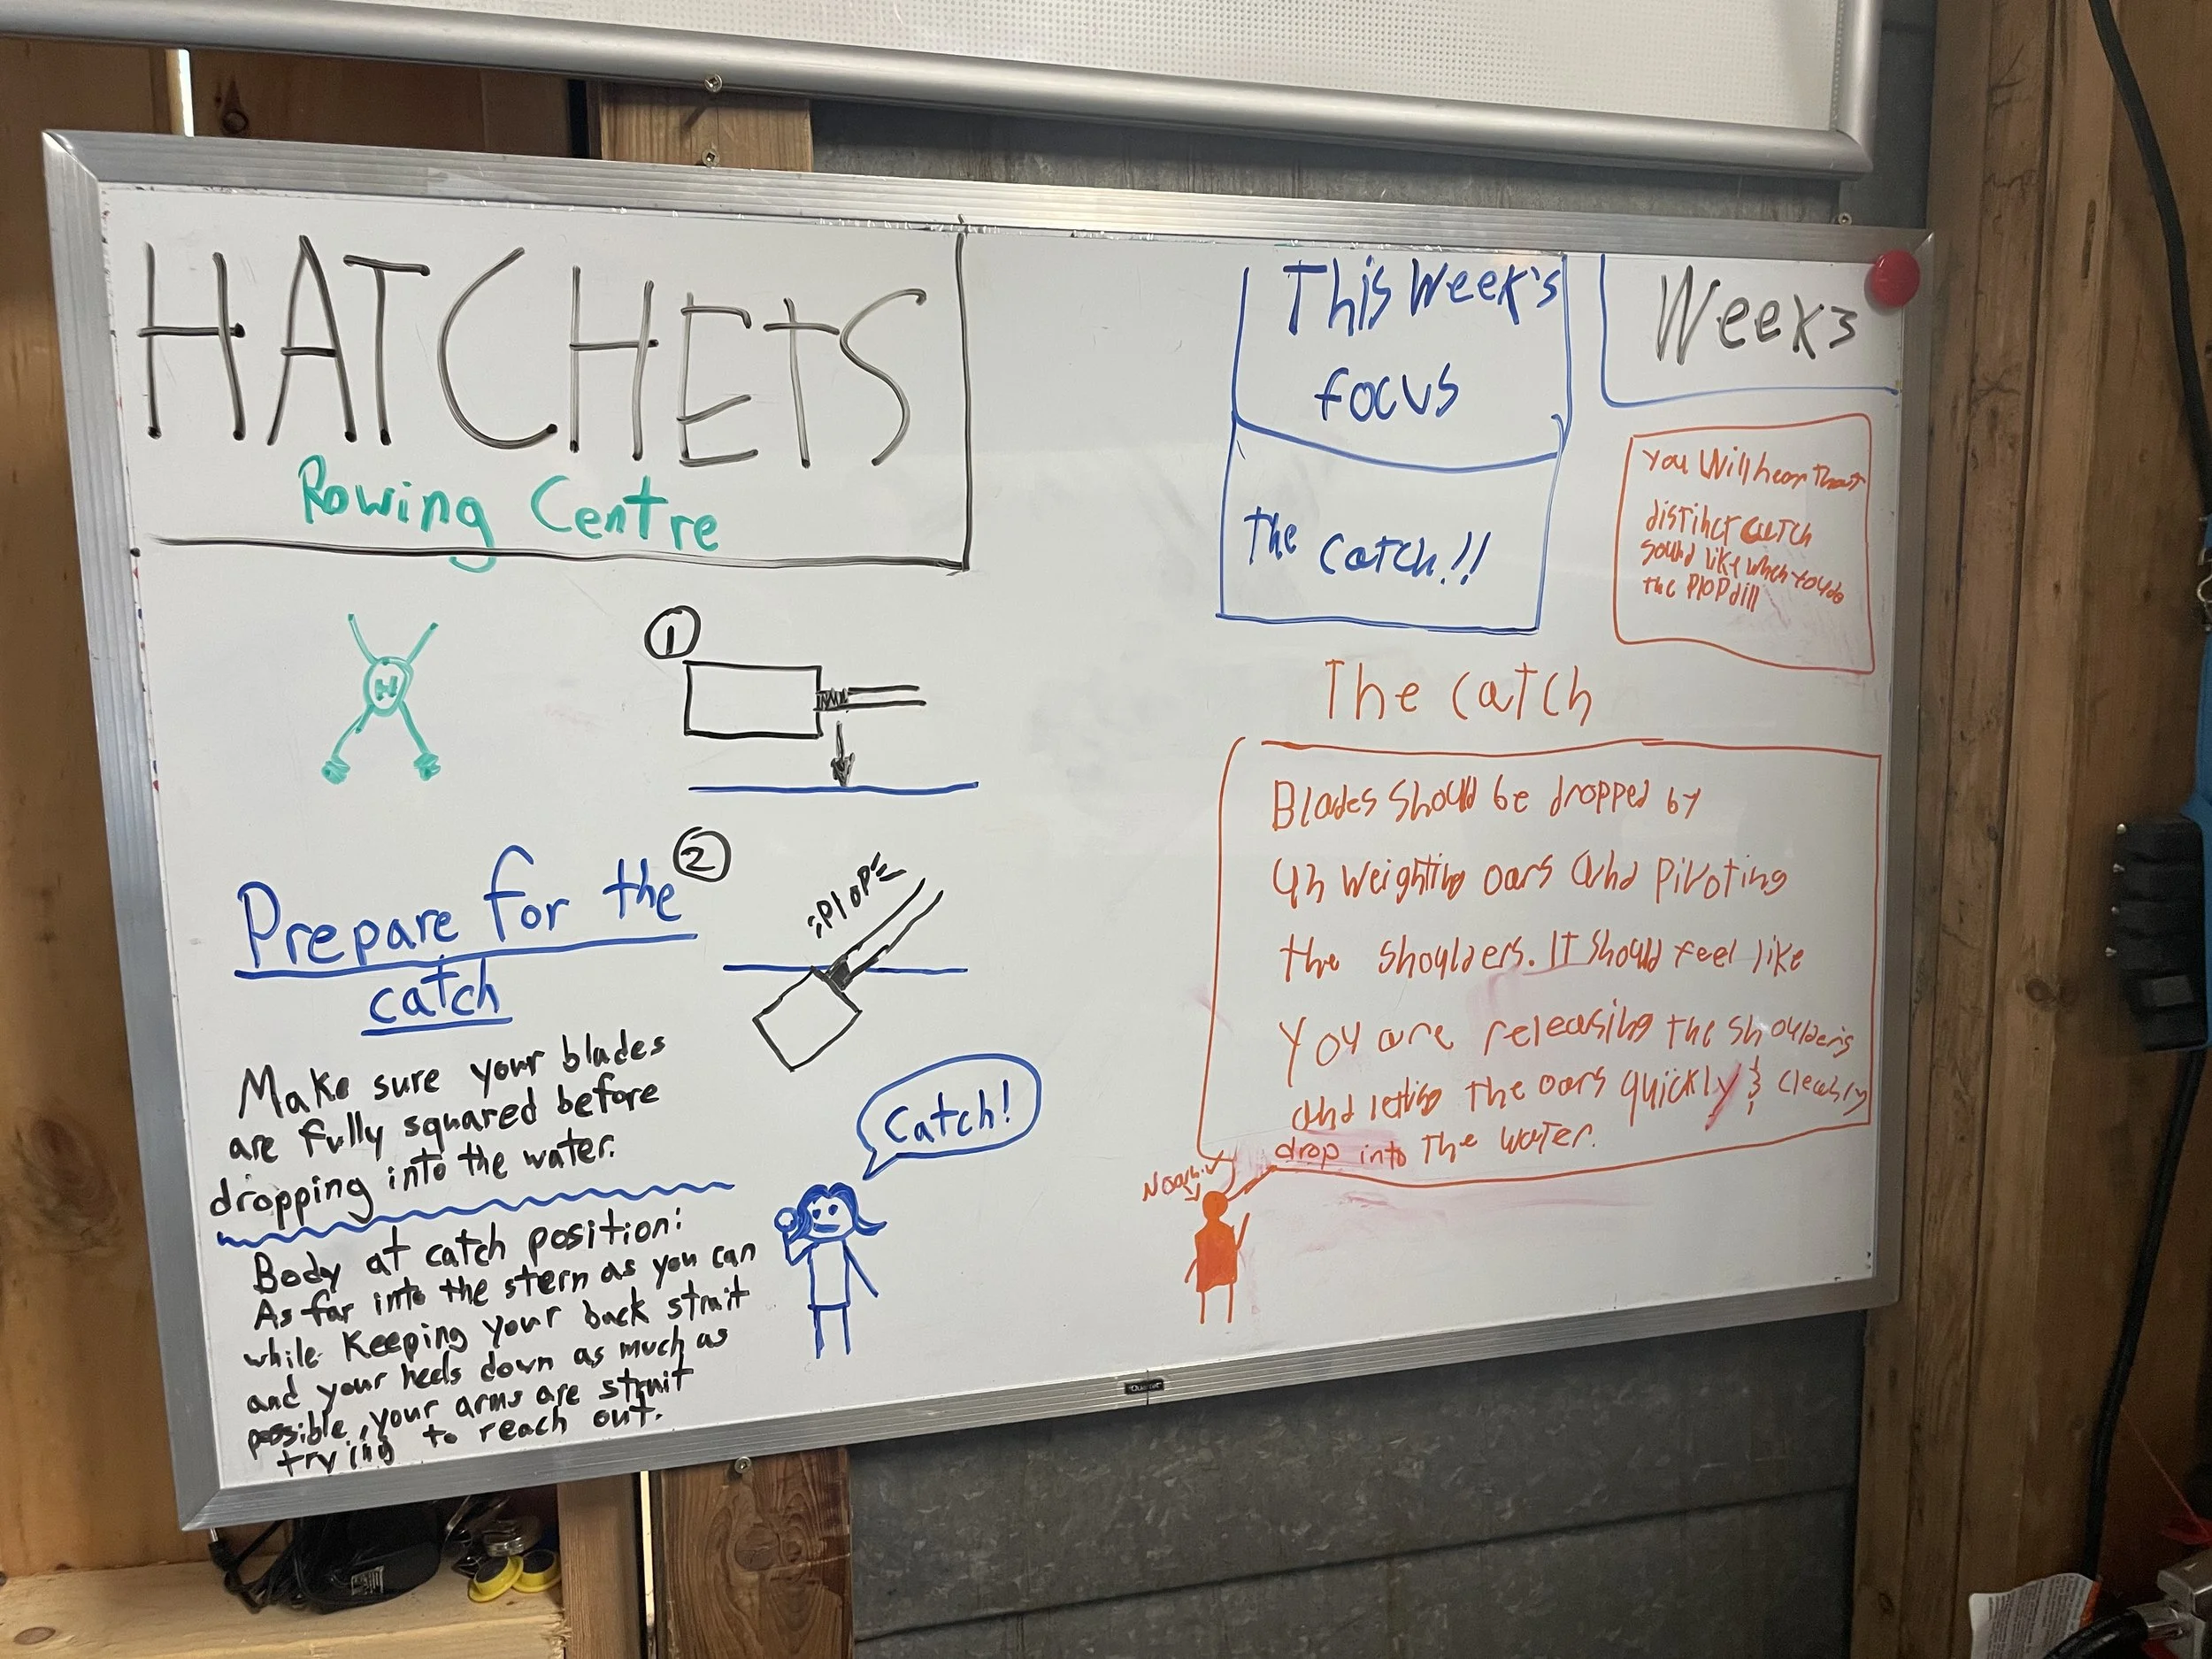 HATCHETS
Rowing Centre
H
1
2
PLOP
Prepare for the
catch
Make sure your blades
are fully squared before
dropping into the water.
Body at catch position:
As far into the stern as you can
while keeping your back strait
and your heels down as much as
possible, your arms are strait
trying to reach out.
Catch!
This Week's
focus
the catch!!
Week 3
you Will hear that
distinct catch
sound like when you do
the PlOP dill
The catch
Blades should be dropped by
un weighting oars and pivoting
the shoulders. It should feel like
you are releasing the shoulders
and letting the oars quickly & cleanly
drop into the water.
Quartet